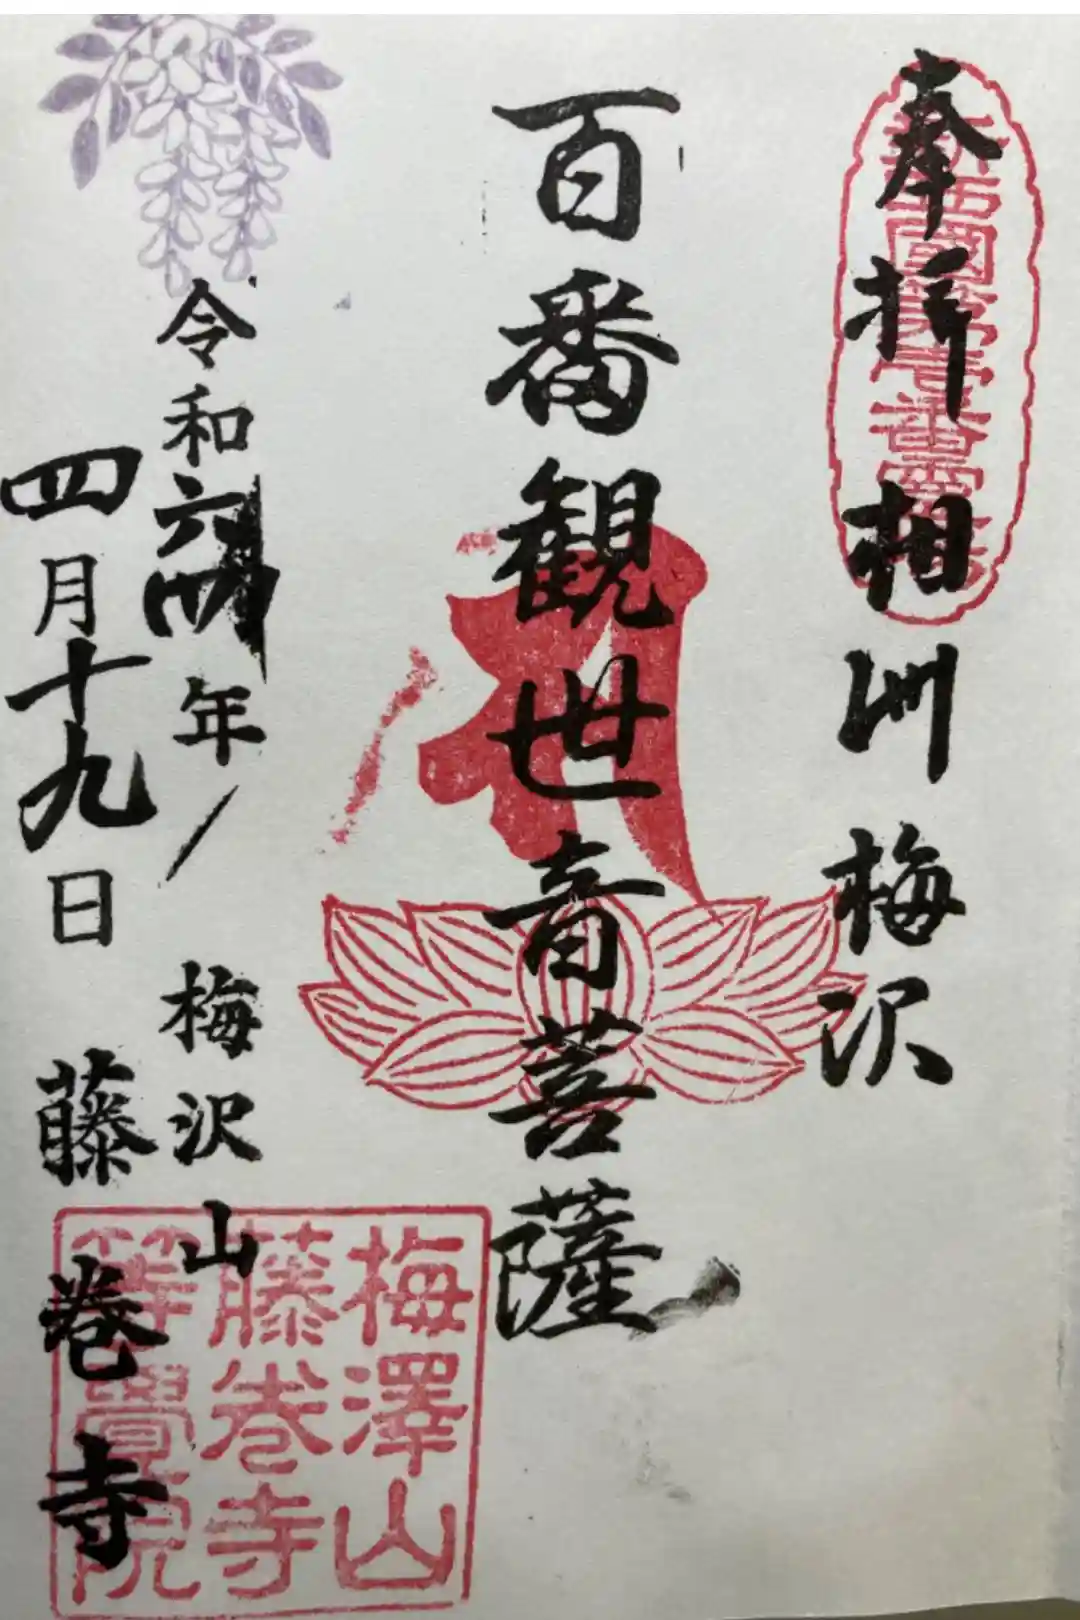 奉拝 相州梅沢
百番観世音菩薩
令和六年/ 梅沢山
四月十九日 藤巻寺
梅澤山
藤巻寺
等覺院